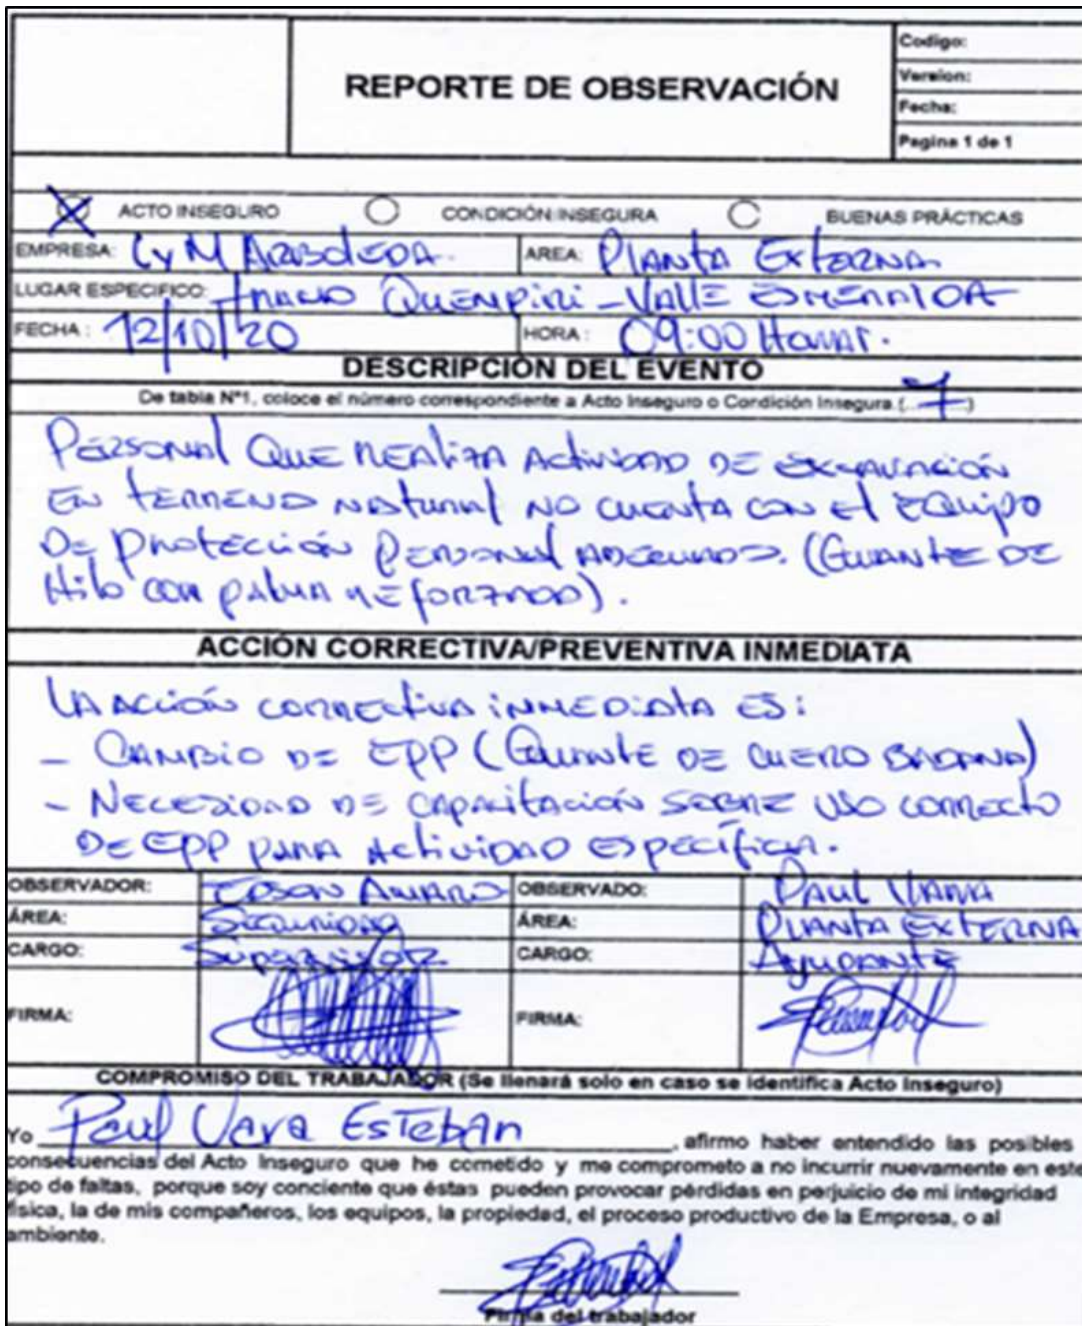 REPORTE DE OBSERVACIÓN
Codigo:
Version:
Fecha:
Pagina 1 de 1
ACTO INSEGURO CONDICIÓN INSEGURA BUENAS PRÁCTICAS
EMPRESA: CyM ARBOLEDA. AREA: Planta Externa
LUGAR ESPECIFICO: tramo Quempiri - Valle Esmeralda
FECHA: 12/10/20 HORA: 09:00 Horas.
DESCRIPCIÓN DEL EVENTO
De tabla N°1, coloce el número correspondiente a Acto Inseguro o Condición Insegura (...7...)
Personal que realiza actividad de excavación
en terreno natural no cuenta con el equipo
de protección personal adecuado. (Guante de
Hilo con palma reforzado).
ACCIÓN CORRECTIVA/PREVENTIVA INMEDIATA
La acción correctiva inmediata es:
- Cambio de EPP (Guante de cuero badana)
- Necesidad de capacitación sobre uso correcto
de EPP para actividad específica.
OBSERVADOR: Edson Amaro OBSERVADO: Paul Vara
ÁREA: Seguridad ÁREA: Planta Externa
CARGO: Supervisor CARGO: Ayudante
FIRMA: FIRMA:
COMPROMISO DEL TRABAJADOR (Se llenará solo en caso se identifica Acto Inseguro)
Yo Paul Vara Esteban, afirmo haber entendido las posibles
consecuencias del Acto Inseguro que he cometido y me comprometo a no incurrir nuevamente en este
tipo de faltas, porque soy conciente que éstas pueden provocar pérdidas en perjuicio de mi integridad
física, la de mis compañeros, los equipos, la propiedad, el proceso productivo de la Empresa, o al
ambiente.
Firma del trabajador